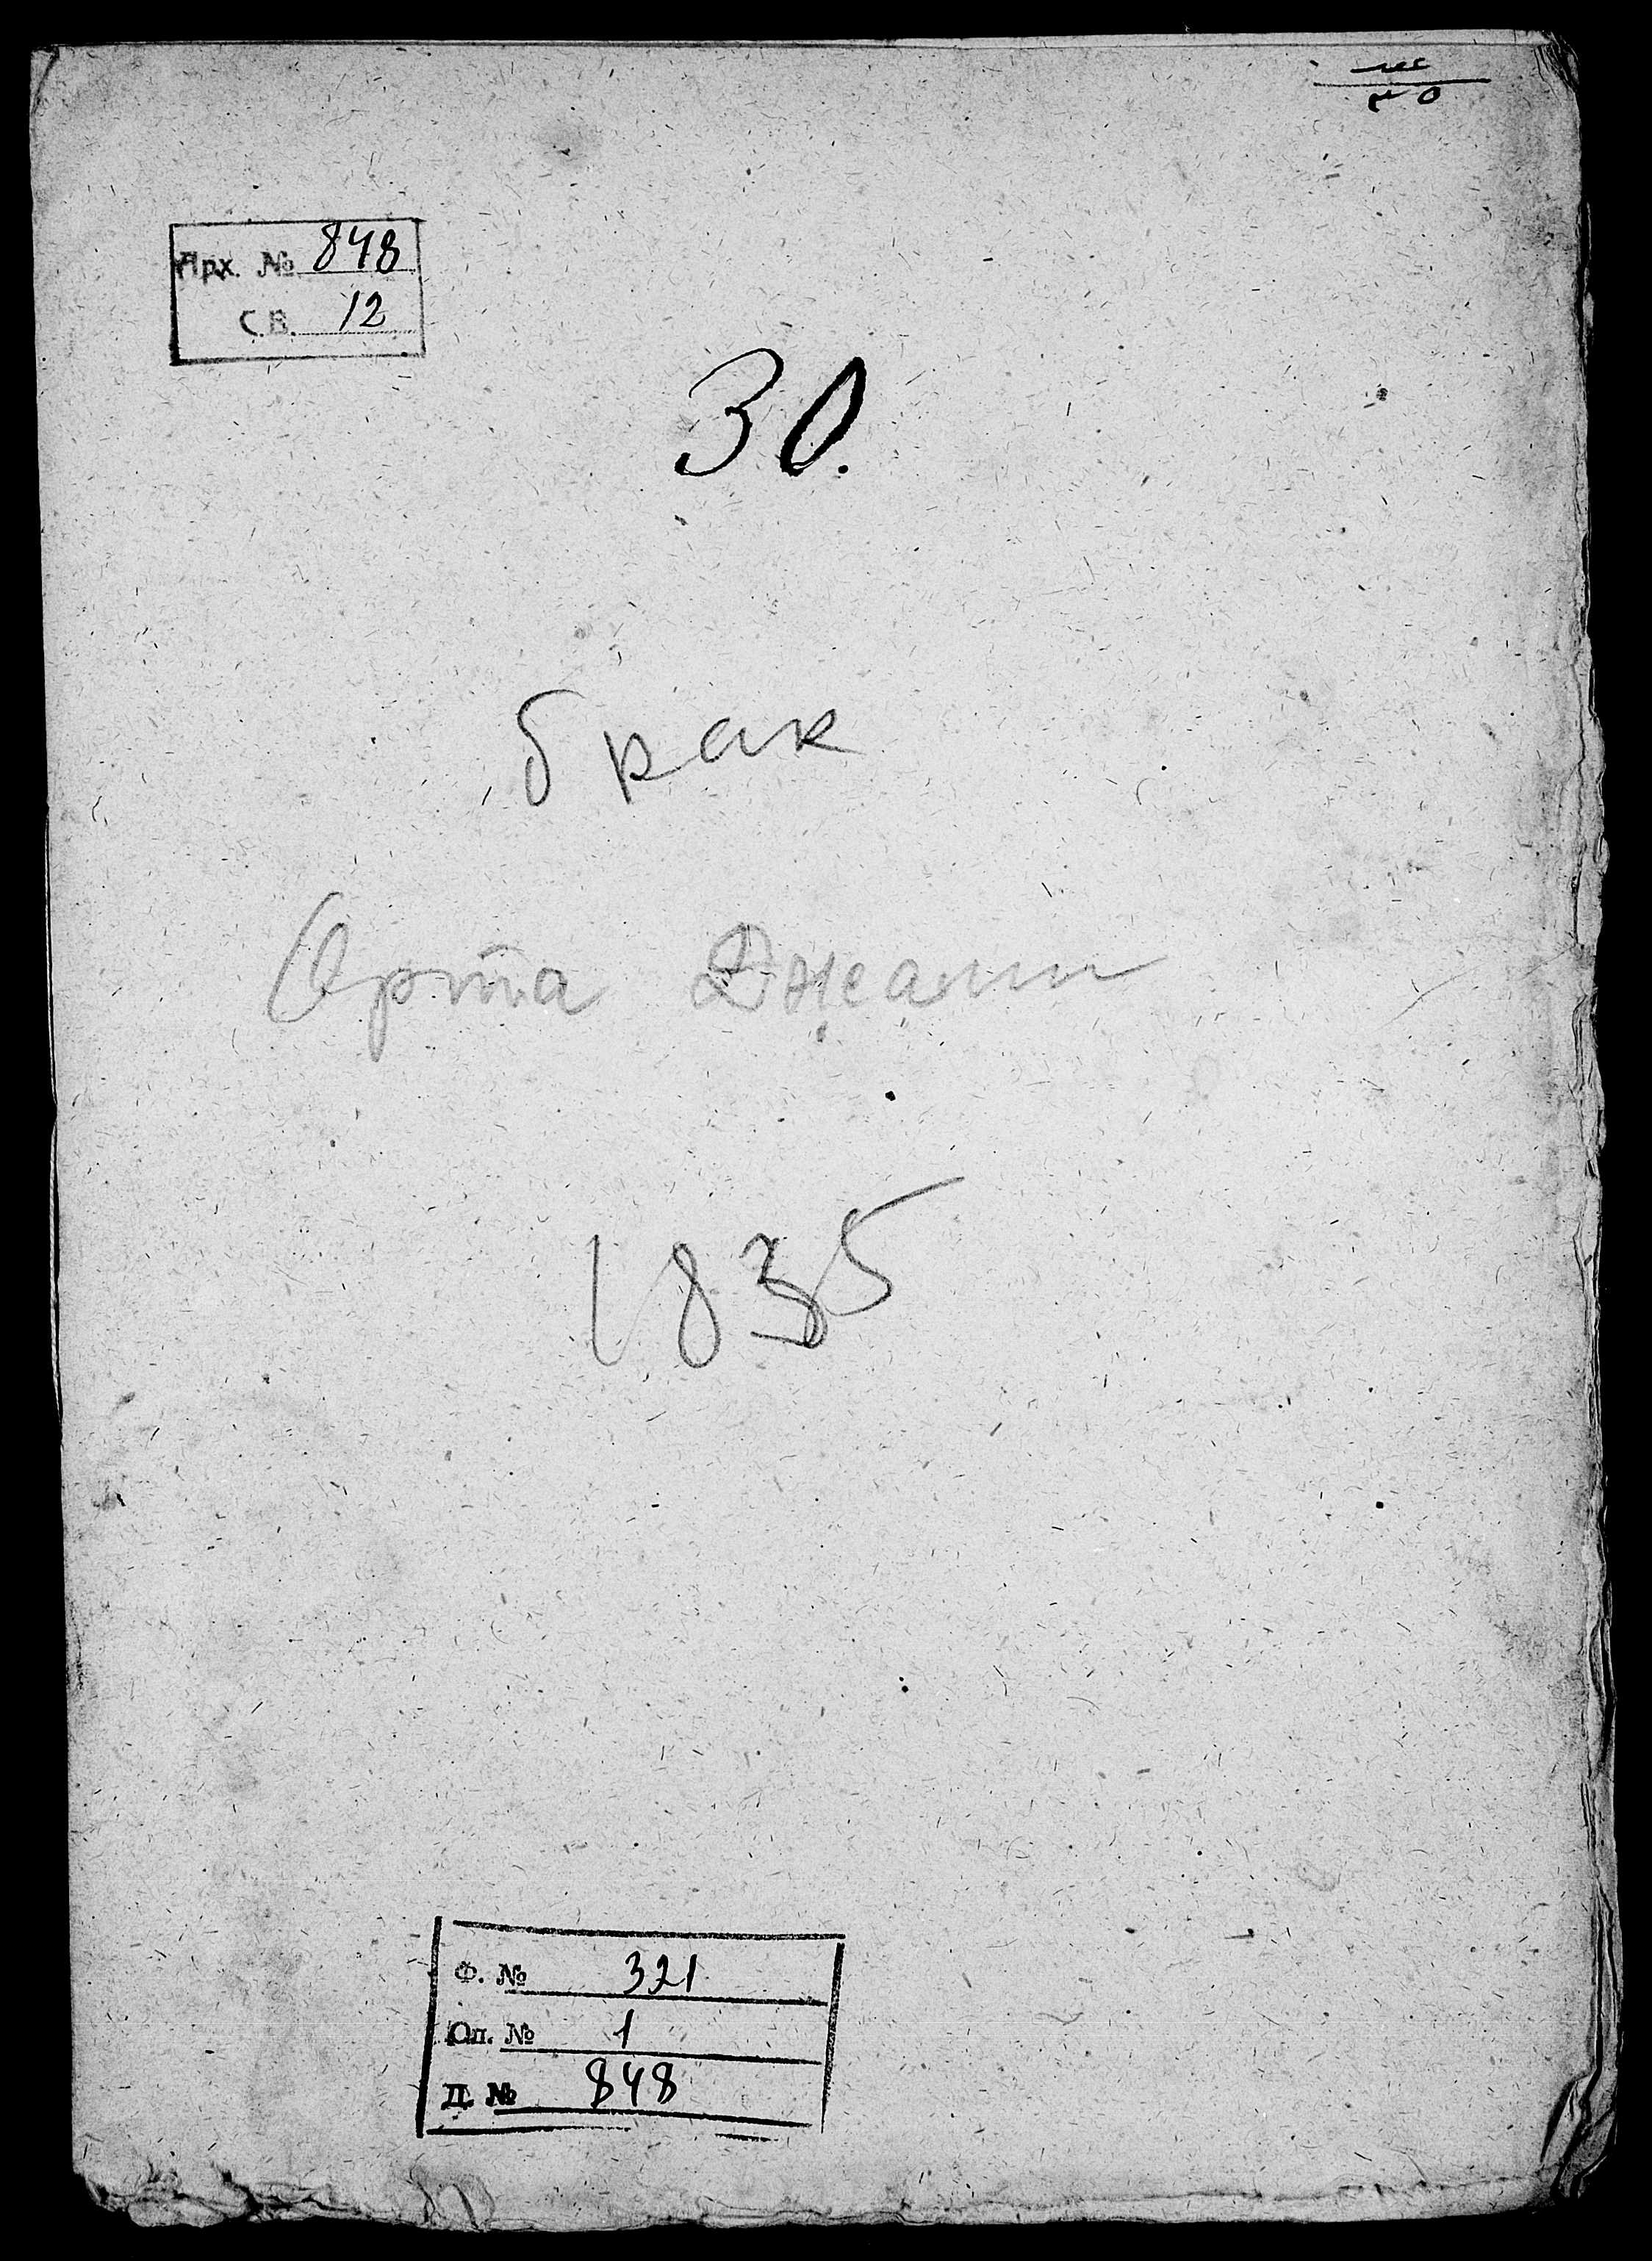 Арх. № 848
С.В. 12
30.
брак
Орта Джами
1835
Ф. № 321
Оп. № 1
Д. № 848